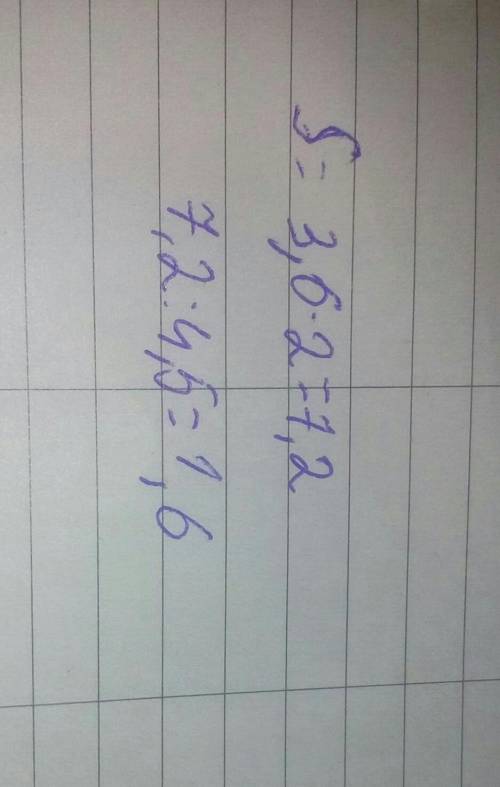 S = 3,6 · 2 = 7,2
7,2 : 4,5 = 1,6